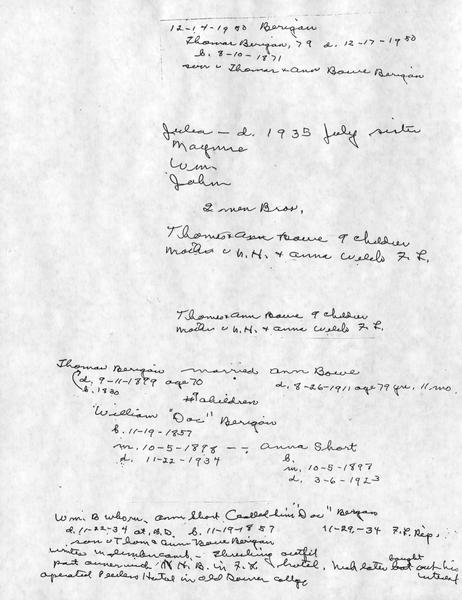 12-14-1950 Berigan
Thomas Berigan, 79 d. 12-17-1950
b. 8-10-1871
son v Thomas & Ann Bowe Berigan
Julia — d. 1935 July sister
Maymie
Wm
John
2 men Bros,
Thomas & Ann Bowe 9 children
v N.H. & Anna Welds F.L.
Thomas & Ann Bowe 9 children
v N.H. & Anna Welds F.L.
Thomas Berigan married Ann Bowe
d. 9-11-1899 age 70 d. 8-26-1911 age 79 yrs, 11 mo.
b. 1830
9 children
William "Doc" Berigan
b. 11-19-1857
m. 10-5-1898 -- Anna Short
d. 11-22-1934 b.
m. 10-5-1898
d. 3-6-1923
Wm. B whom Ann Short Called him "Doc" Berigan
d. 11-22-34 at B.D. b. 11-19-1857 11-29-34 F.L. Rep,
son v Thom & Ann Bowe Berigan
in lumber camb - Threshing outfit
part owner N.H.B. in F.L hotel, later bought out his interest
operated Peerless Hotel in old